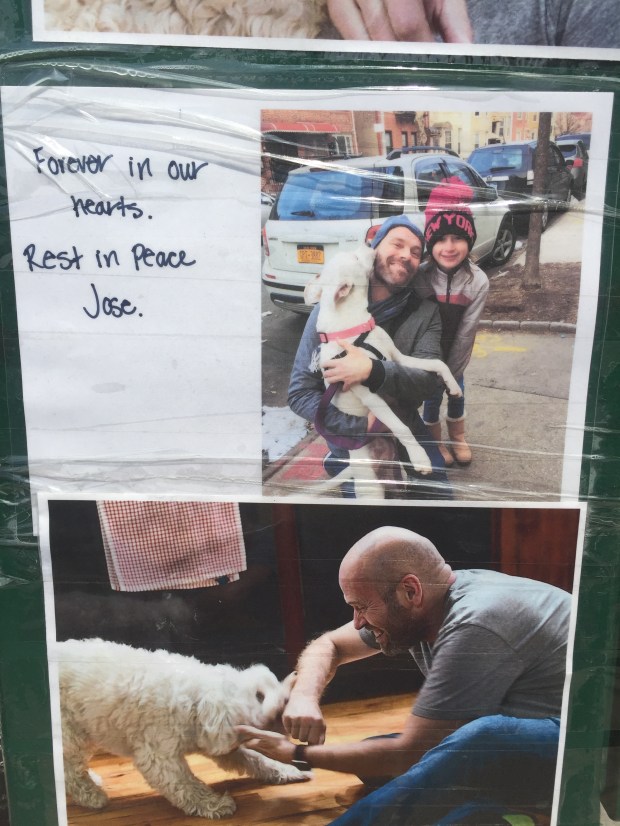 Forever in our
hearts.
Rest in Peace
Jose.
NEW YORK